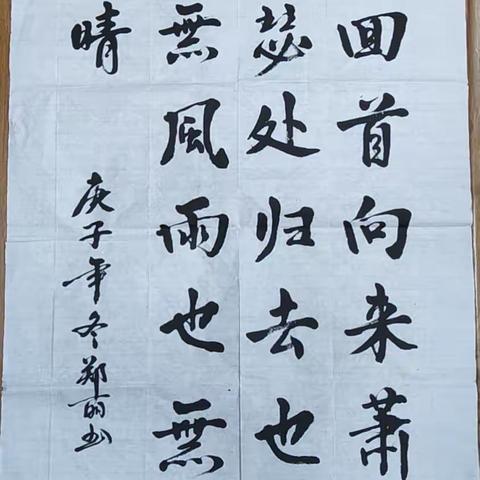 回首向来萧
瑟处归去也
無風雨也無
晴
庚子年冬郑丽书